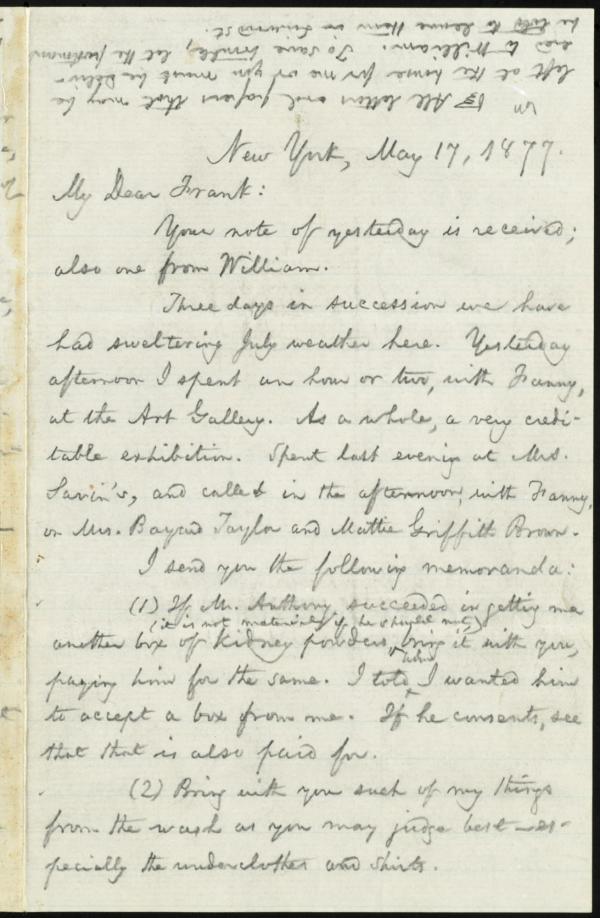 All letters and papers that may be
left at the house for me or you must be deliv-
ered to William. To save trouble, let the postman
be told to leave them in
New York, May 17, 1877.
My Dear Frank:
Your note of yesterday is received;
also one from William.
Three days in succession we have
had sweltering July weather here. Yesterday
afternoon I spent an hour or two, with Fanny,
at the Art Gallery. As a whole, a very credi-
table exhibition. Spent last evening at Mrs.
Savin's, and called in the afternoon, with Fanny,
on Mrs. Bayard Taylor and Mattie Griffith Brown.
I send you the following memoranda:
(1) If Mr. Anthony succeeded in getting me
(it is not material if he should not,)
another box of kidney powders, bring it with you,
paying him for the same. I told him I wanted him
to accept a box from me. If he consents, see
that that is also paid for.
(2) Bring with you such of my things
from the wash as you may judge best—es-
pecially the underclothes and shirts.